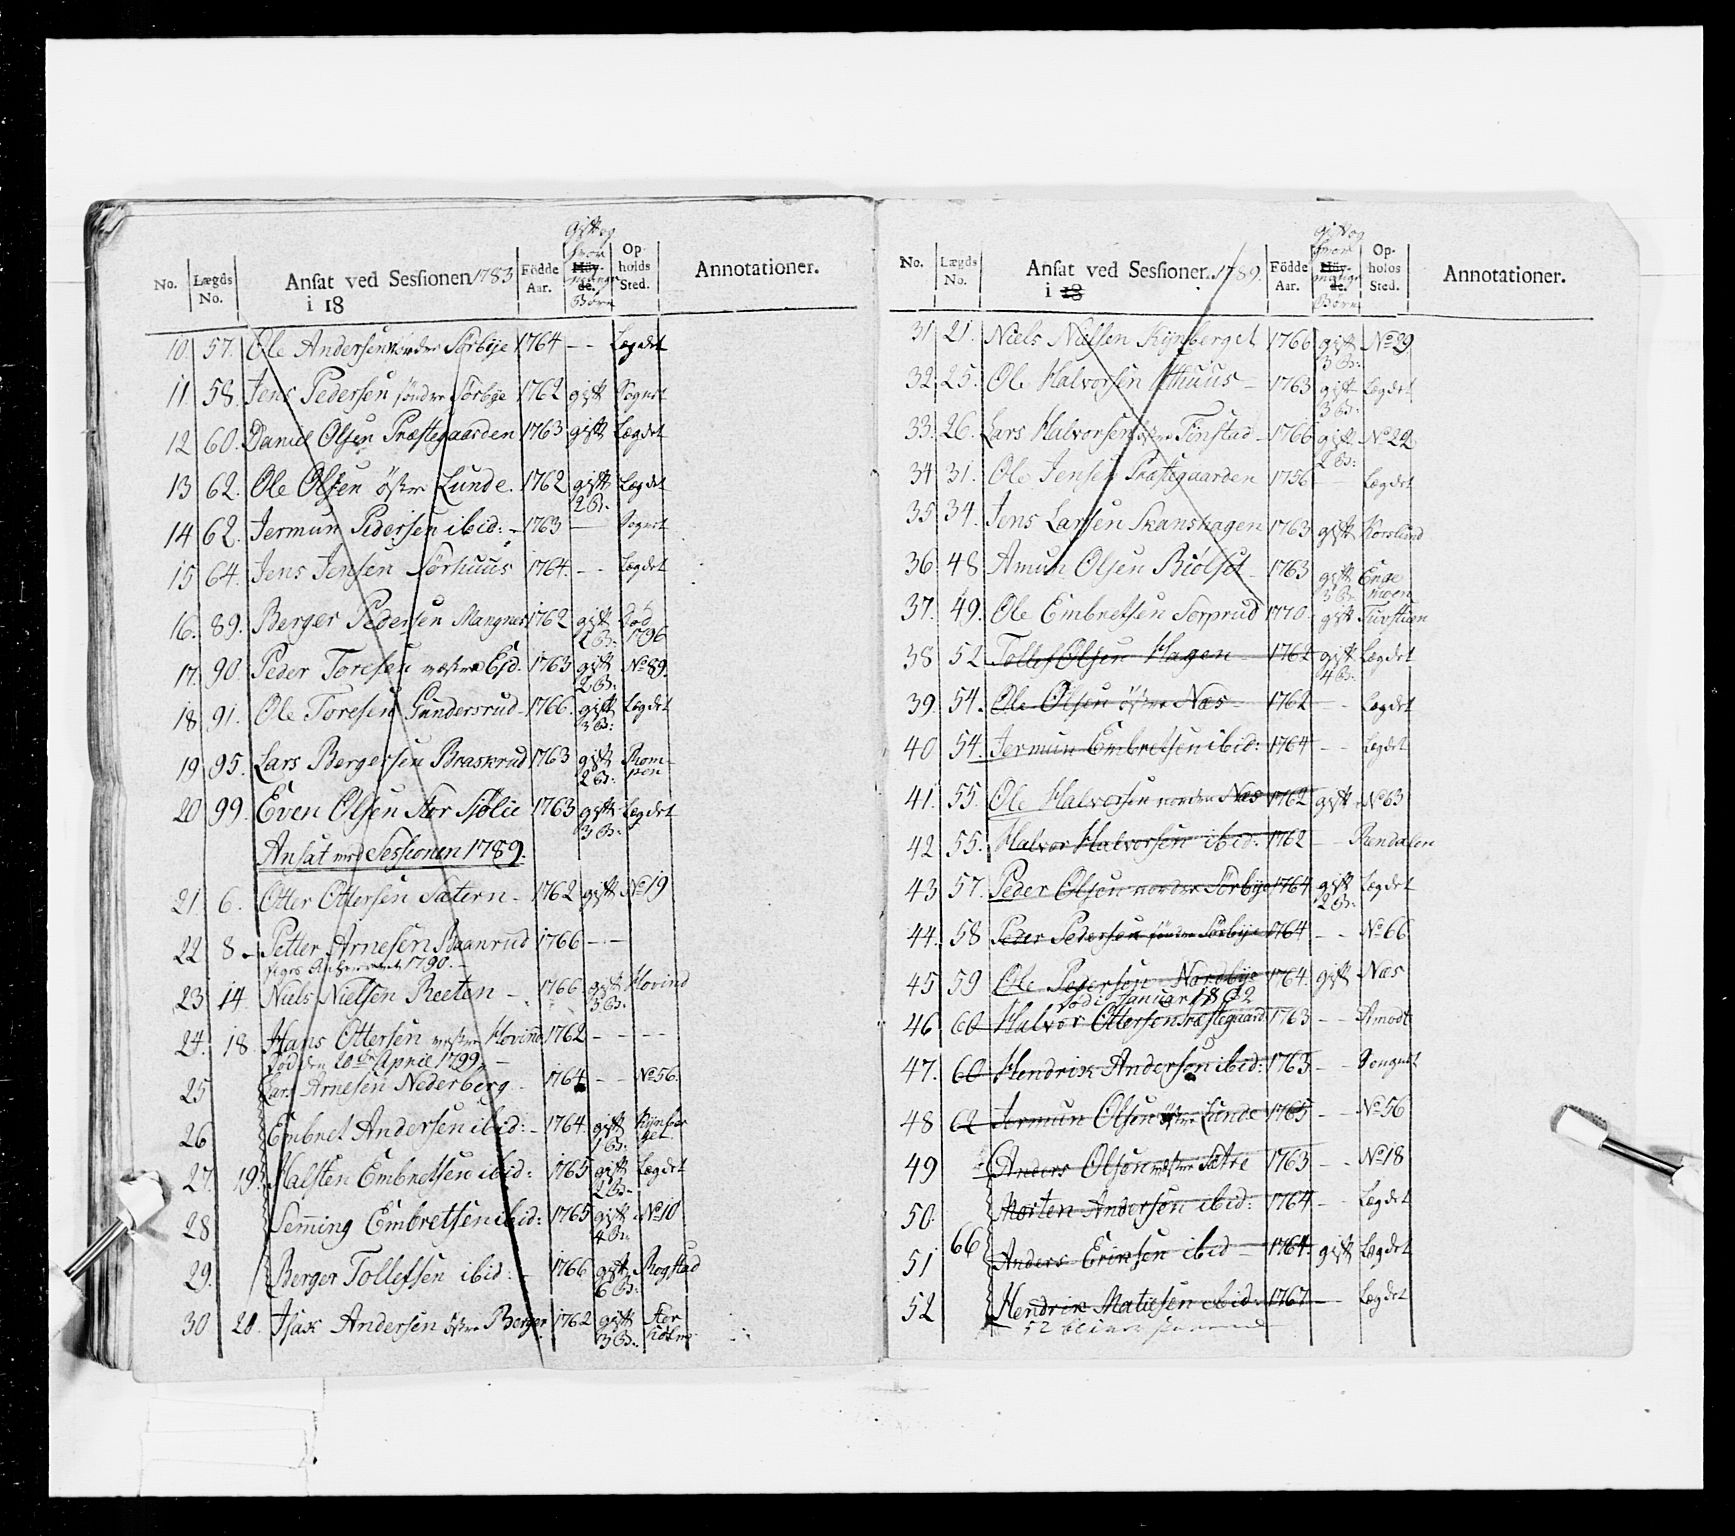 No. Lægds No. Ansat ved Sessionen 1783 i 18 Födde Aar. gift og hvor Höy-de. mange Börn Op-holds Sted. Annotationer.
10 57. Ole Andersen nordre Sörbye 1764 - - Lægdet
11 58. Jens Pedersen söndre Sörbye 1762 gift Sognet
12 60. Daniel Olsen Præstegaarden 1763 gift Lægdet
13 62. Ole Olsen östre Lunde. 1762 gift 2 B. Lægdet
14 62. Jermun Pedersen ibid: - 1763 - Sognet
15 64. Jens Jensen Sörhuus 1764. - - Lægdet
16. 89. Berger Pedersen Mangnes 1762 gift 2 B. Död 1796
17. 90. Peder Toresen vestre Eid. 1763 gift 2 B. No 89.
18 91. Ole Toresen Gundersrud 1766. gift 3 B. Lægdet
19 95. Lars Bergersen Braskrud 1763 gift 2 B. Rom-pen
20 99. Even Olsen Stor Sjölie 1763 gift 3 B. Lægdet
Ansat ved Sessionen 1789.
21 6. Otter Ottersen Sætern - 1762 gift No 19
22 8 - Petter Arnesen Baanrud 1766 - -
1790. -
23 14 Niels Nielsen Reeten - 1766 gift 5 B. Hovind
24. 18 Hans Ottersen vestre Hovind 1762 - - - -
Död den 20de April 1799. -
25 Lars Arnesen Nederberg - 1764 - - No 56.
26 Embret Andersen ibid: - 1764. gift 1 B. Kynber get
27. 19. Halsten Embretsen ibid: 1765 gift 2 B. Lægdet
28 Semming Embretsen ibid: 1765 gift 4 B. No 10
29. Berger Tollefsen ibid: - 1766 gift 6 B. Rogstad
30 20. Isak Andersen östre Berger 1762 gift 3 B. Stor
No. Lægds No. Ansat ved Sessioner. 1789. i 18 Födde Aar. gift og hvor Höy-de. mange Börn Op-holds Sted. Annotationer.
31 21. Niels Nielsen Kynberget 1766 gift 3 B. No 29
32 25. Ole Halvorsen Sthuus - 1763 gift 3 B. Lægdet
33. 26. Lars Halvorsen östre Finstad - 1766 gift 2 B. No 22
34 31. Ole Jensen Præstegaarden 1756 - Lægdet
35 34. Jens Larsen Skanshagen 1763 gift Korslund
36 48 Amun Olsen Biölset - 1763 gift 3 B. Enge moen
37. 49. Ole Embretsen Sorprud 1770 - gift
38 52 Tollef Olsen Hagen - 1762 gift 4 B. Lægdet
39. 54. Ole Olsen östre Næs - 1762 - - Lægdet
40 54. Jermun Embretsen ibid: 1764 - - Lægdet
41. 55. Ole Halvorsen nordre Næs 1762 gift - No 63
42 55. Halvor Halvorsen ibid: 1762 - - Rendalen
43 57. Peder Olsen nordre Sörbye 1764 gift 2 B. Lægdet
44. 58 Peder Pedersen söndre Sörbye 1764 - - No 66
45 59 Ole Pedersen Nordbye 1764. gift Næs
död i Januar 1802
46 60 Halvor Ottersen Præstegaard 1763 - - Aamodt
47. 60 Hendrik Andersen ibid: 1763 - - Songnet
48 62 Jermun Olsen östre Lunde 1765 - - No 56
49 Anders Olsen vestre Sætre 1763 - - No 18
50. Morten Andersen ibid: 1764 - - Lægdet
51 66 Anders Eriksen ibid - 1764 - gift Lægdet
52 Hendrik Matiesen ibid. 1767 - Lægdet
52 bliver